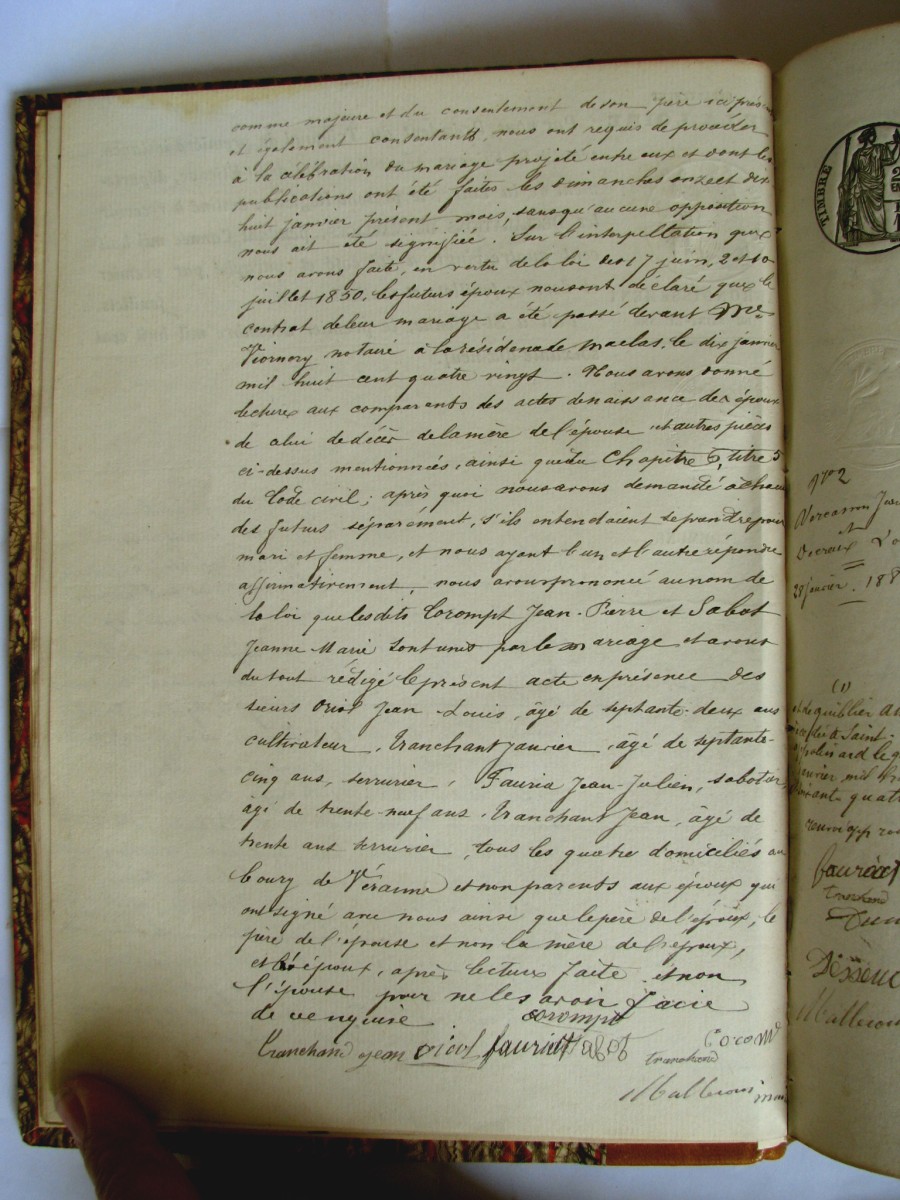 comme majeure et du consentement de son père ici prés
et également consentants, nous ont requis de procéder
à la célébration du mariage projeté entre eux et dont les
publications ont été faites les dimanches onze et dix
huit janvier présent mois, sans qu'aucune opposition
nous ait été signifiée. Sur l'interpellation que
nous avons faite, en vertu de la loi des 17 juin, 2 et 10
juillet 1850, les futurs époux nous ont déclaré que le
contrat de leur mariage a été passé devant Me
notaire à la résidence de Maclas, le dix janvier
mil huit cent quatre vingt. Nous avons donné
lecture aux comparents des actes de naissance des époux
de celui de décès de la mère de l'épouse et autres pièces
ci-dessus mentionnées, ainsi que du Chapitre 6, titre 5
du Code civil; après quoi nous avons demandé à chacun
des futurs séparément, s'ils entendaient se prendre pour
mari et femme, et nous ayant l'un et l'autre répondu
affirmativement, nous avons prononcé au nom de
la loi que les dits Corompt Jean-Pierre et Sabot
Jeanne Marie sont unis par le mariage et avons
du tout rédigé le présent acte en présence des
sieurs Oriol Jean Louis, âgé de septante-deux ans
cultivateur, Tranchant Janvier, âgé de septante-
cinq ans, serrurier, Fauria Jean-Julien, sabotier
âgé de trente-neuf ans, Tranchant Jean, âgé de
trente ans serrurier, tous les quatre domiciliés au
bourg de Véranne et non parents aux époux qui
ont signé avec nous ainsi que le père de l'époux, le
père de l'épouse et non la mère de l'époux,
et l'époux, après lecture faite et non
l'épouse pour ne les avoir
de ce requise
corompt
Tranchand jean oriol fauriat Sabot
tranchand
TIMBRE
2
No 2
et
28 janvier. 188
(1)
à Saint-
janvier mil
quatre